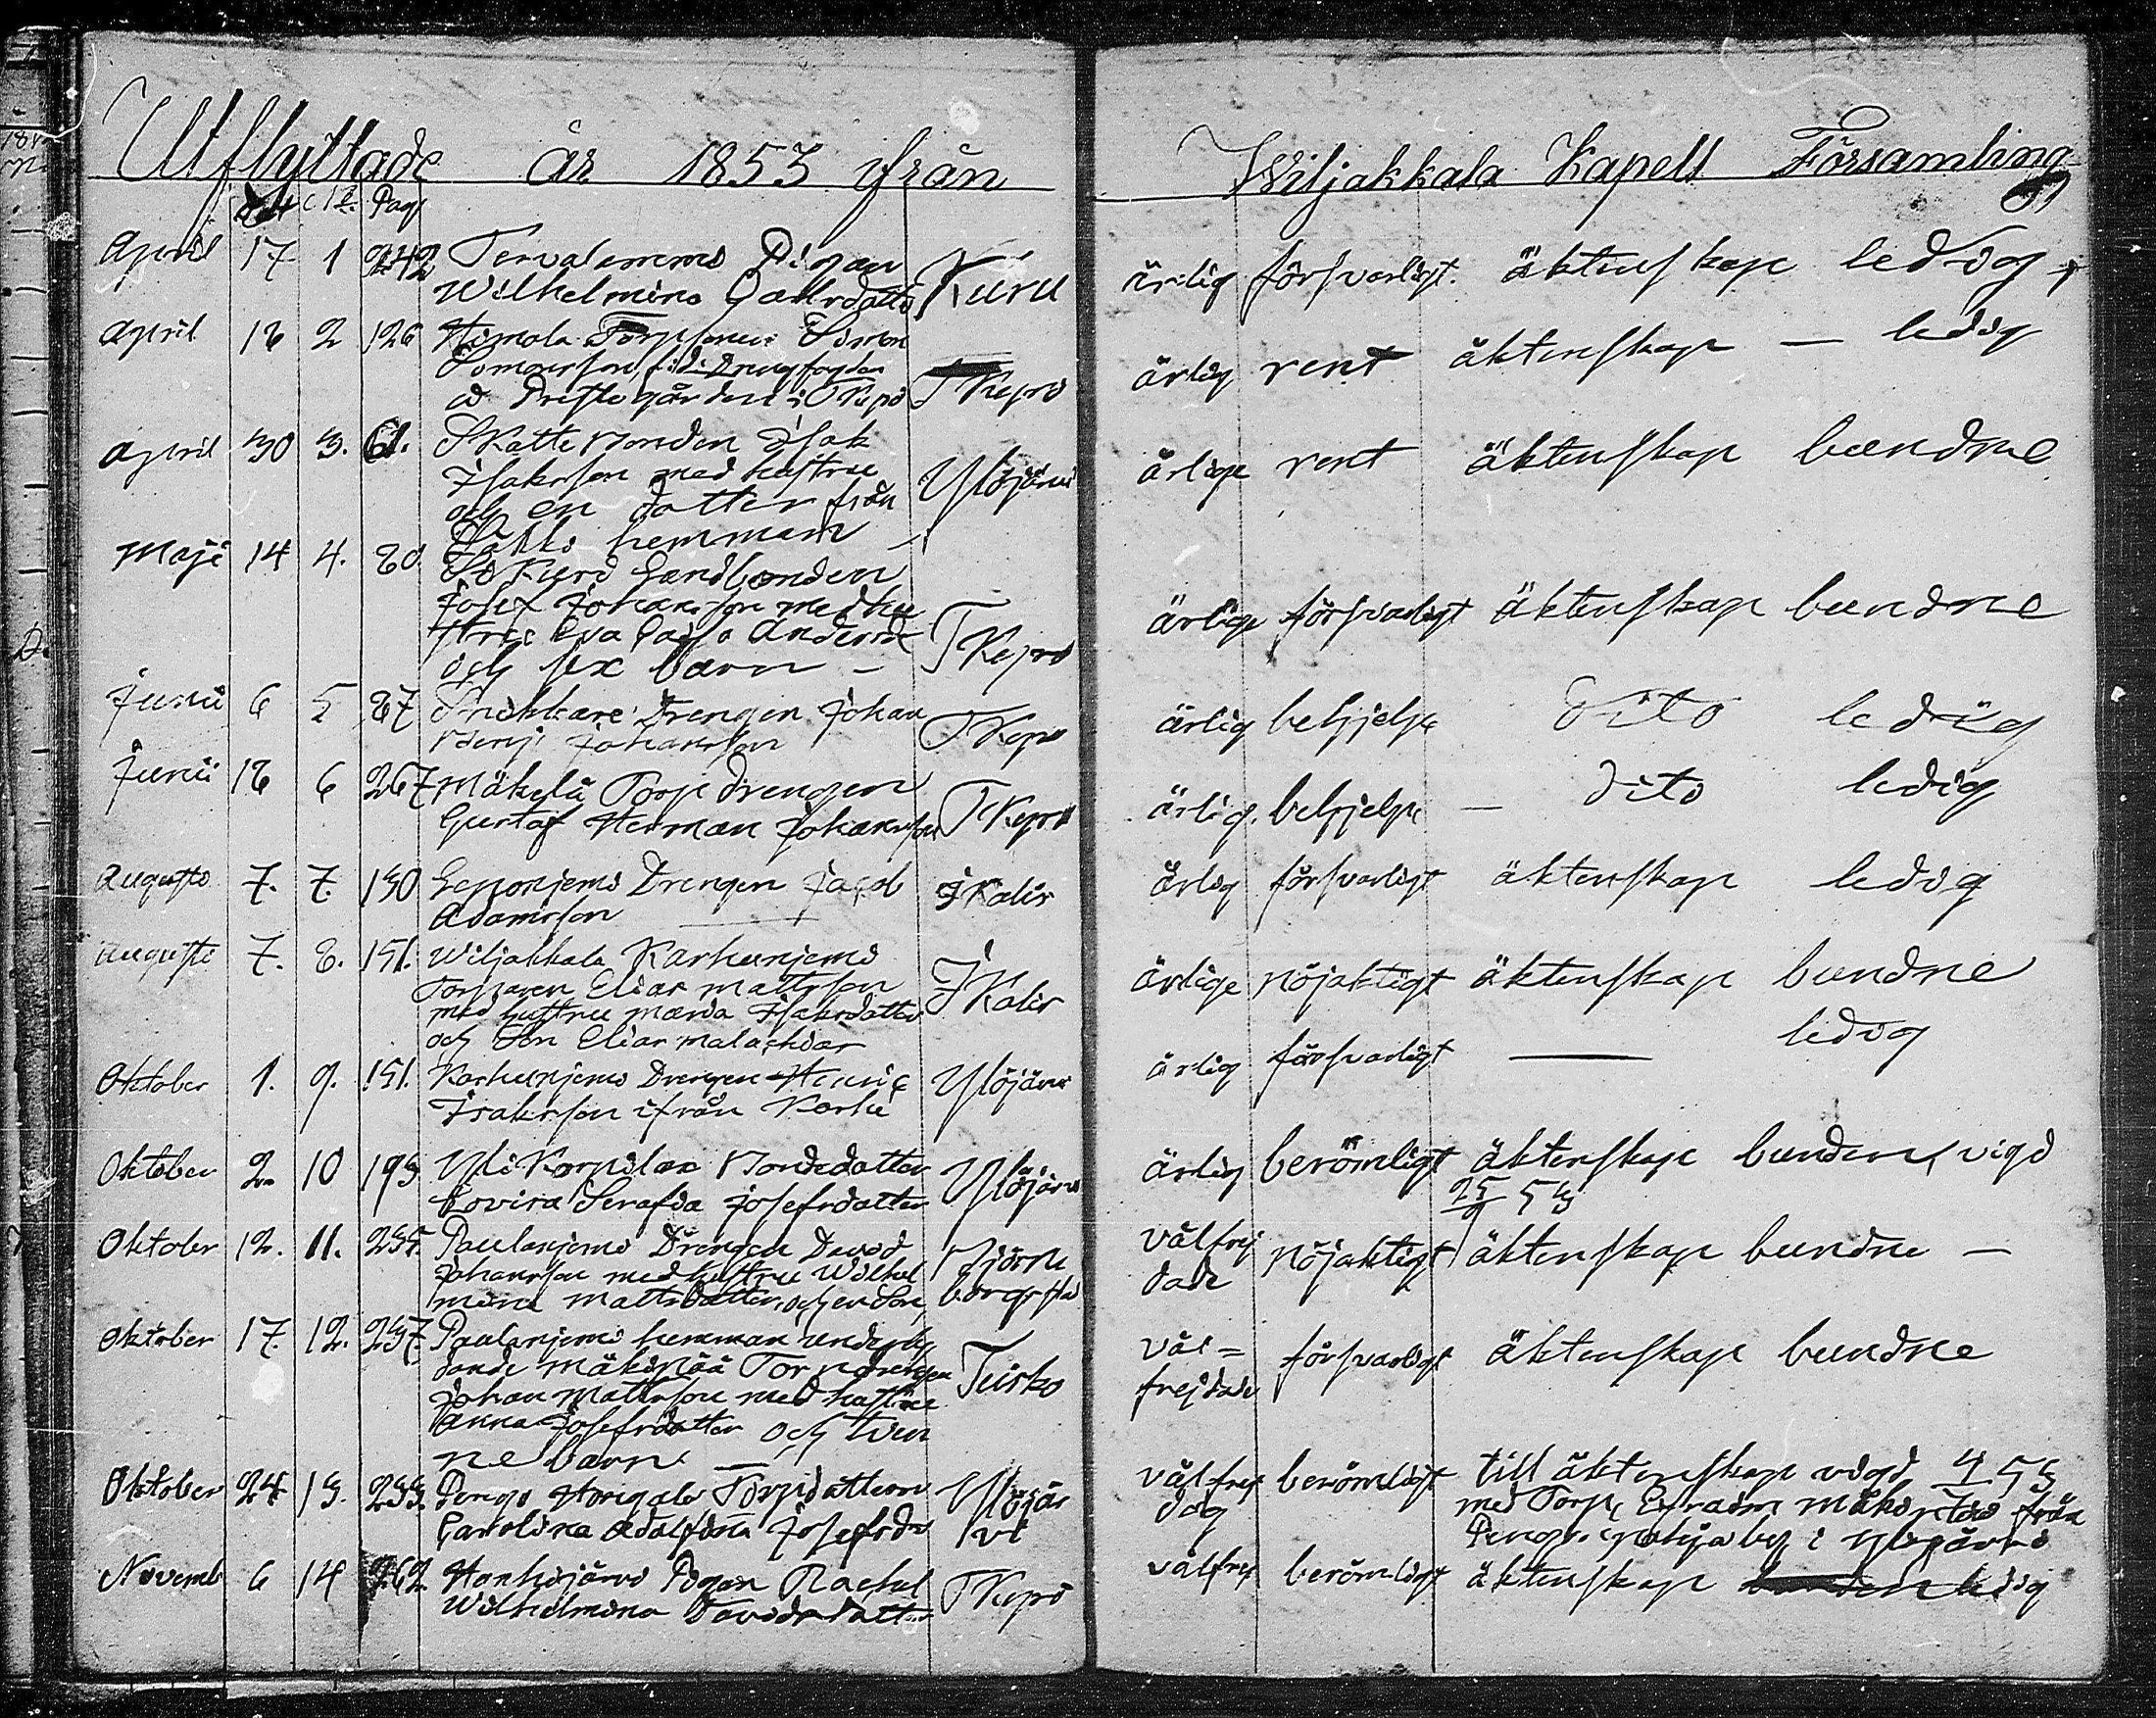 Utflyttade år 1853 ifrån Wiljakkala Kapell Församling
Pag
April 17 1 242 Tervalammi Pigan
Wilhelmina Carlsdotter Kuru ärlig försvarligt. äktenskap ledig
April 18 2 126 Simon
Simonsson
Prestegården i TKyrö TKyro ärlig rent äktenskap — ledig
April 30 3. 61. Skatte Bonden Isak
Isaksson med hustru
och en dotter från Ylöjärvi ärlige rent äktenskap bundne
hemmam
Maji 14 4. 80. Landbonden
Josef Johansson med hu
stru Eva Caisa Andersdr
och sex barn — TKyro ärlige försvarligt äktenskap bundne
Junii 6 5 87 Snikkare Drengen Johan
Benj. Johansson TKyro ärlig behjelpl dito ledig
Junii 18 6 267 Mäkelä Torp drengen
Gustaf Herman Johansson TKyro ärlig. behjelpl — dito ledig
Augusti 7. 7. 130 Drengen Jacob
Adamsson IKalis ärlig försvarligt äktenskap ledig
Augusti 7. 8. 151. Wiljakkala Karhunjemi
Torparen Elias Mattsson
med hustru Maria Isaksdotter
och Son Elias Malachias IKalis ärlige nöjaktigt äktenskap bundne
Oktober 1. 9. 151. Karhunjemi Drengen Henric
Isaksson ifrån Karhe Ylöjärvi ärlig försvarligt — ledig
Oktober 2. 10 193 Yli Korpilax Bondedotter
Lovisa Serafia Josefsdotter Ylöjärvi ärlig berömligt äktenskap bunden, vigd
25/9 53
Oktober 12. 11. 235. Paulanjemi Drengen David
Johansson med hustru Wilhel
mina Mattsdotter, och en Son Björne
borgs stad välfrej
dade nöjaktigt äktenskap bundne —
Oktober 17. 12. 237. Paulanjemi hemman underly
dande Mäkipää Torpdrengen
Johan Mattsson med hustru
Anna Josefsdotter och tven
ne barn — Teisko väl=
frejdade försvarligt äktenskap bundne
Oktober 24 13. 233. Torpdottern
Carolina Adalfina Josefsdr Ylöjär
vi välfrej
dig berömligt till äktenskap vigd 4 53
med Torp. Efraim från
by i Ylöjärvi
Novemb 6 14 262 Hanhijärvi Pigan Rachel
Wilhelmina Davidsdotter TKyrö välfrej berömligt äktenskap ledig